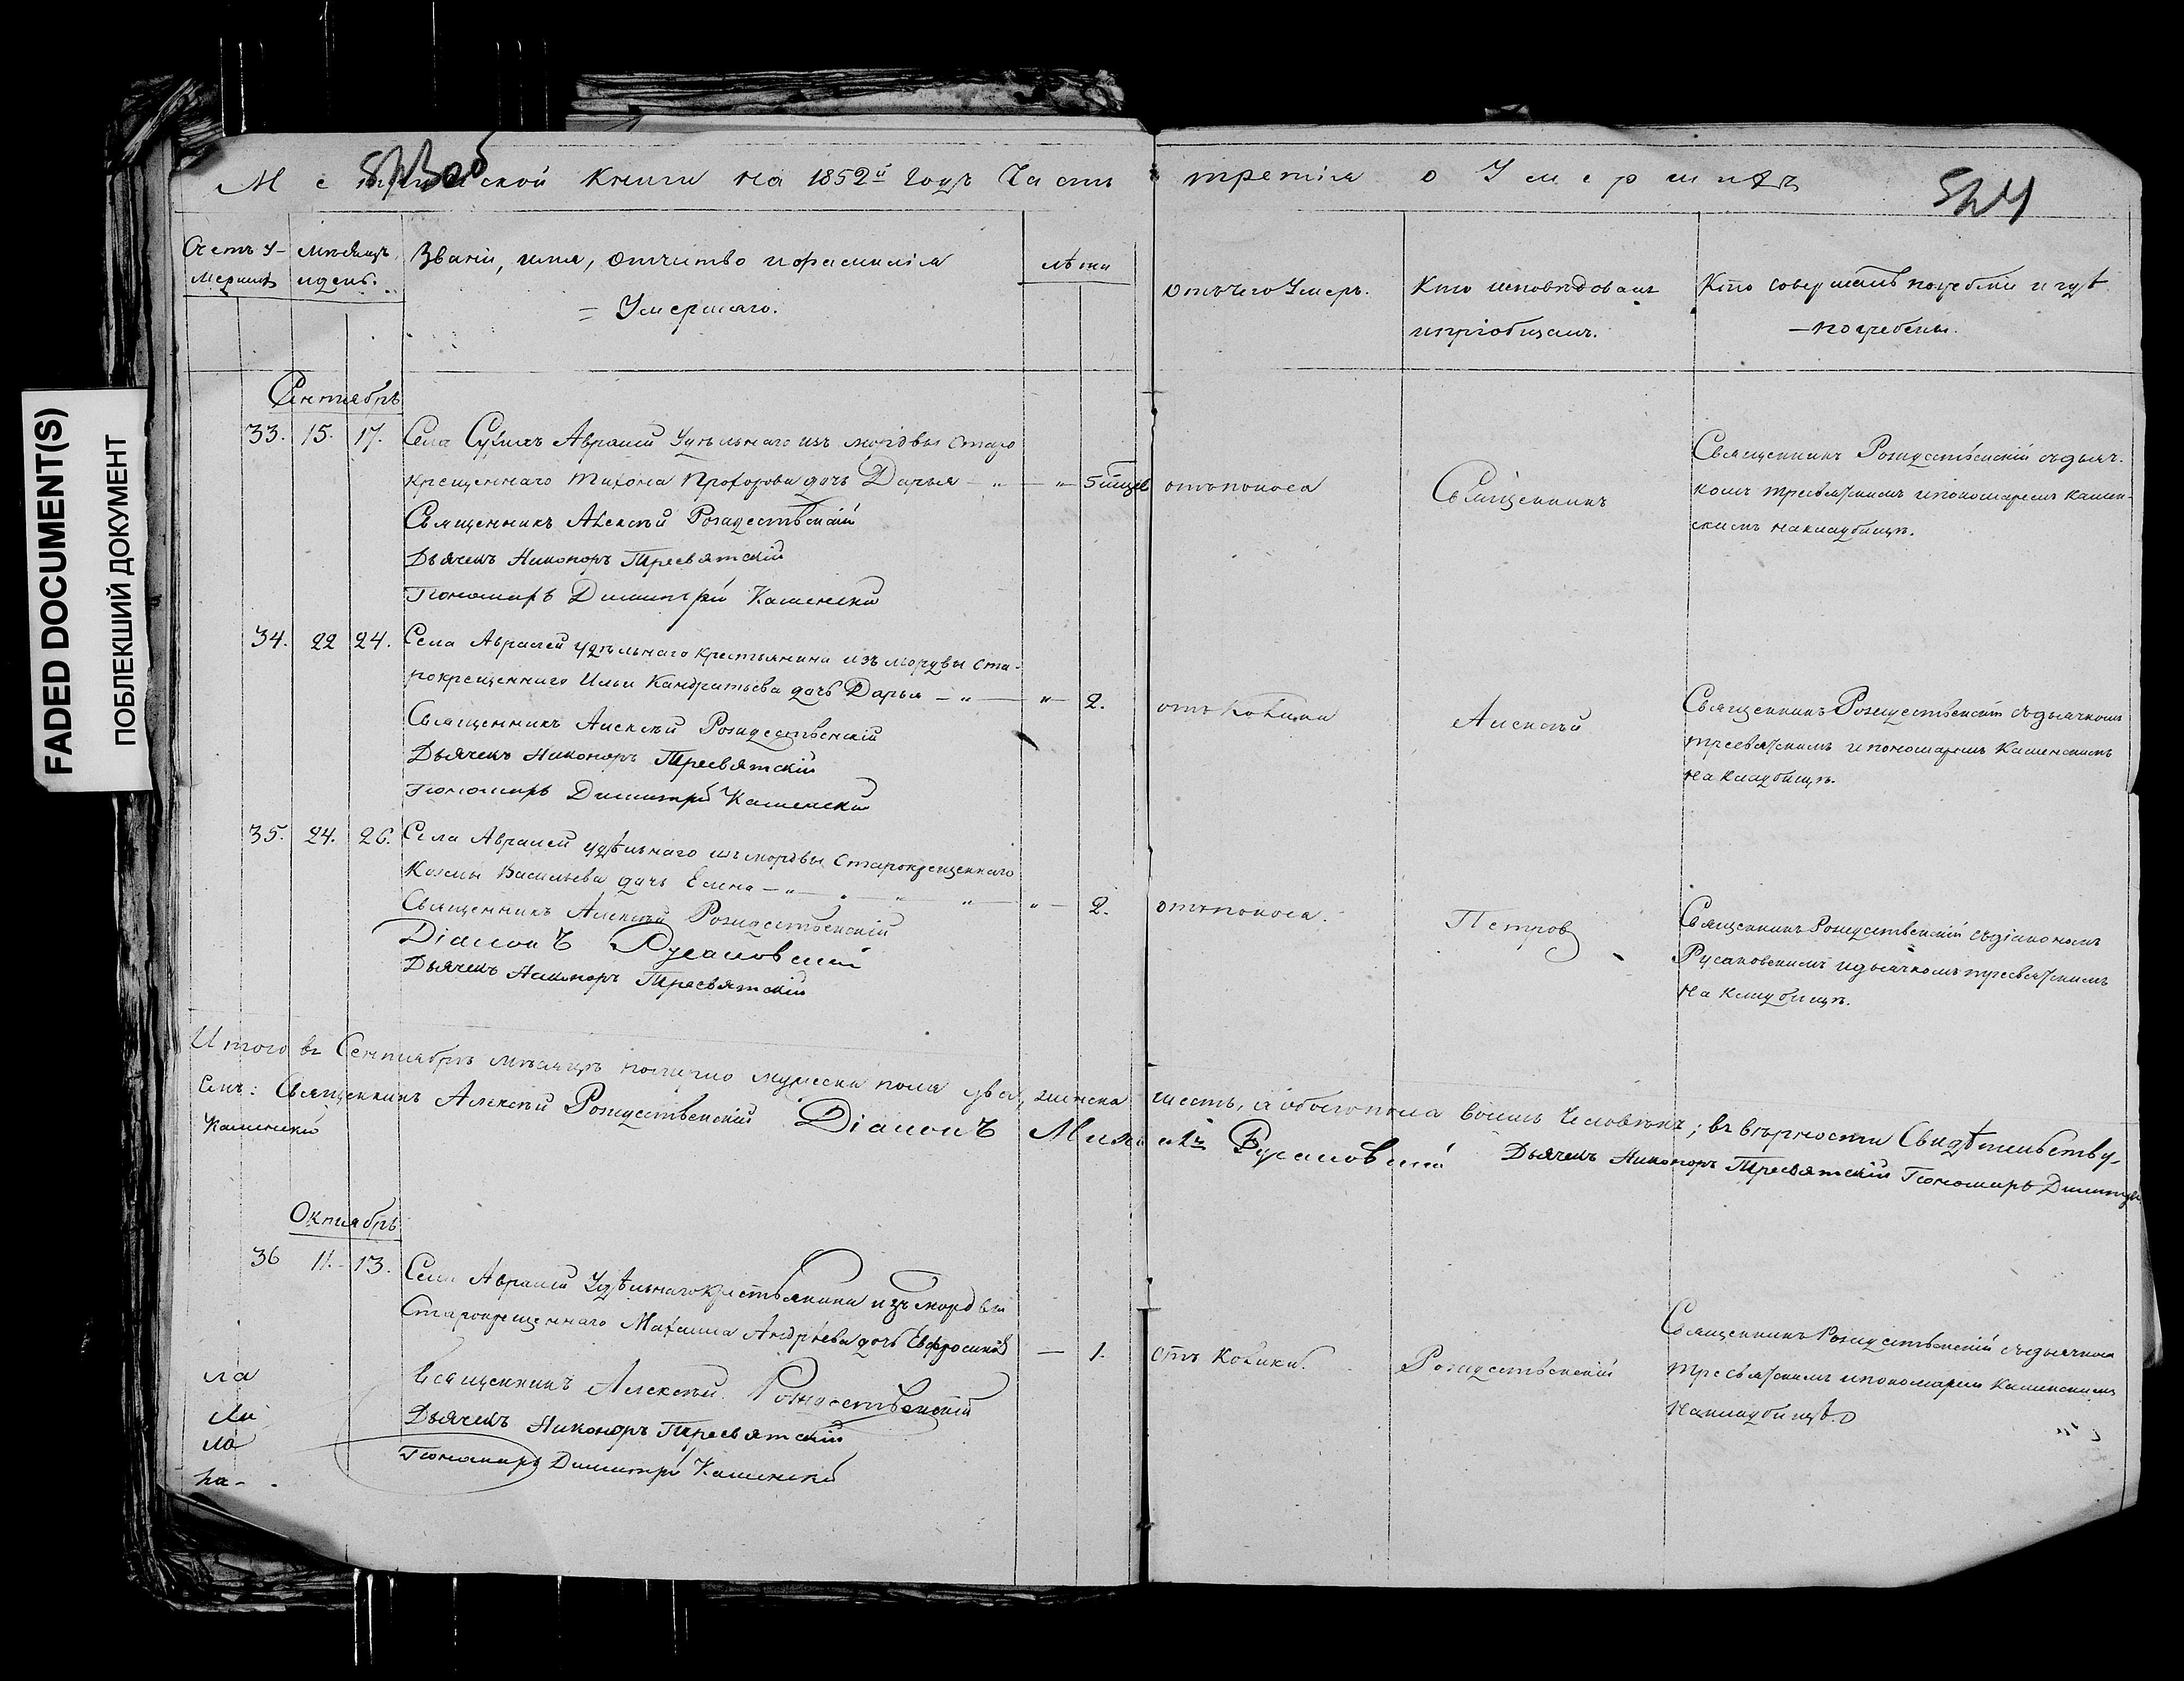 523об
Метрической книги на 1852й годъ Часть третія о Умершихъ
524
Счетъ У-
мершихъ
мѣсяцъ
и день.
Званіи, имя, отчитво и фамилія
Умершаго.
лѣта
Отъ чего Умеръ.
Кто исповѣдовалъ
и пріобщалъ.
Кто совершалъ погребеніи и гдѣ
погребены.
Сентябрь
33. 15. 17. Села Сухихъ Авралей Удѣльнаго изъ мордвы старо
крещеннаго Тихона Прохорова дочь Дарья - „ - „ - 5 мѣсяцев отъ поноса Священникъ
Священникъ Рождественскій съ дьяч-
комъ Тресвятскимъ и пономаремъ Камен-
скимъ на кладбищѣ.
Священникъ Алексѣй Рождественскій
Дьячекъ Никоноръ Тресвятскій
Пономарь Димитрій Каменскій
34. 22 24. Села Авралей удѣльнаго крестьянина изъ мордвы ста-
рокрещеннаго Ильи Кандратьева дочь Дарья - „ - „ - 2. отъ Алексѣй
Священникъ Рождественскій съ дьячкомъ
Тресвятскимъ и пономаремъ Каменскимъ
на кладбищѣ.
Священникъ Алексѣй Рождественскій
Дьячекъ Никоноръ Тресвятскій
Пономарь Димитрій Каменскій
35. 24. 26. Села Авралей удѣльнаго изъ мордвы старокрещеннаго
Козмы Васильева дочь Елена - „ - „ - „ - „ - 2. отъ поноса. Петровъ
Священникъ Рождественскій съ діакономъ
Русановскимъ и дьячкомъ Тресвятскимъ
на кладбищѣ.
Священникъ Алексѣй Рождественскій
Діаконъ Русановскій
Дьячекъ Никоноръ Тресвятскій
Итого въ Сентябрѣ мѣсяцѣ померло мужеска пола два, женска шесть, а обоего пола восемь человѣкъ; въ вѣрности Свидѣтельству-
емъ: Священникъ Алексѣй Рождественскій Діаконъ Михаилъ Русановскій Дьячекъ Никоноръ Тресвятскій Пономарь Димитрій
Каменскій
Октябрь
36 11. 13. Села Авралей Удѣльнаго крестьянина изъ мордвы
Старокрещеннаго Михаила Андрѣева дочь Евфросинія — 1. отъ Рождественскій
Священникъ Рождественскій съ дьячкомъ
Тресвятскимъ и пономаремъ Каменскимъ
на кладбищѣ
Священникъ Алексѣй Рождественскій
Дьячекъ Никоноръ Тресвятскій
Пономарь Димитрій Каменскій
ла
ли
ла
на-
FADED DOCUMENT(S)
ПОБЛЕКШИЙ ДОКУМЕНТ